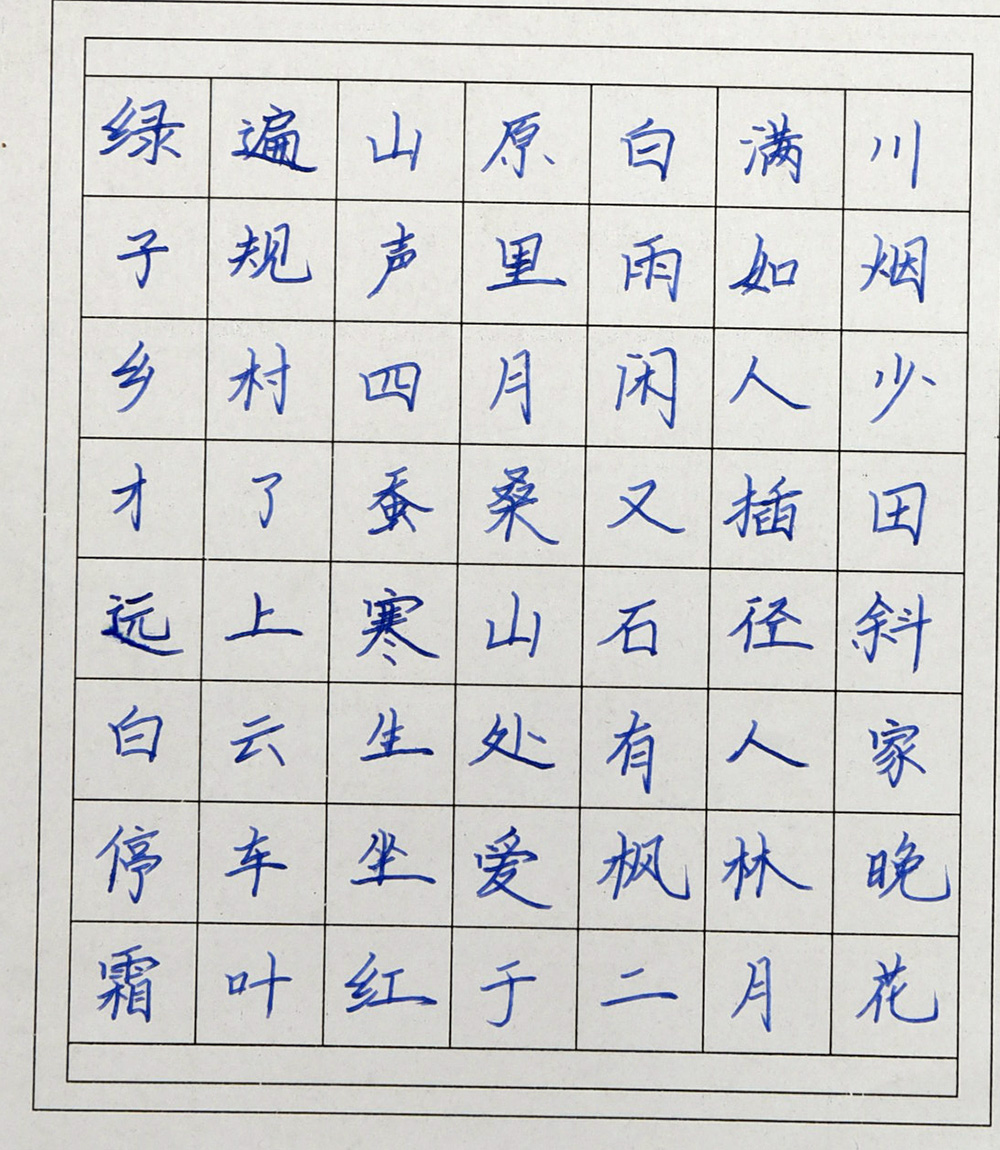 绿遍山原白满川
子规声里雨如烟
乡村四月闲人少
才了蚕桑又插田
远上寒山石径斜
白云生处有人家
停车坐爱枫林晚
霜叶红于二月花